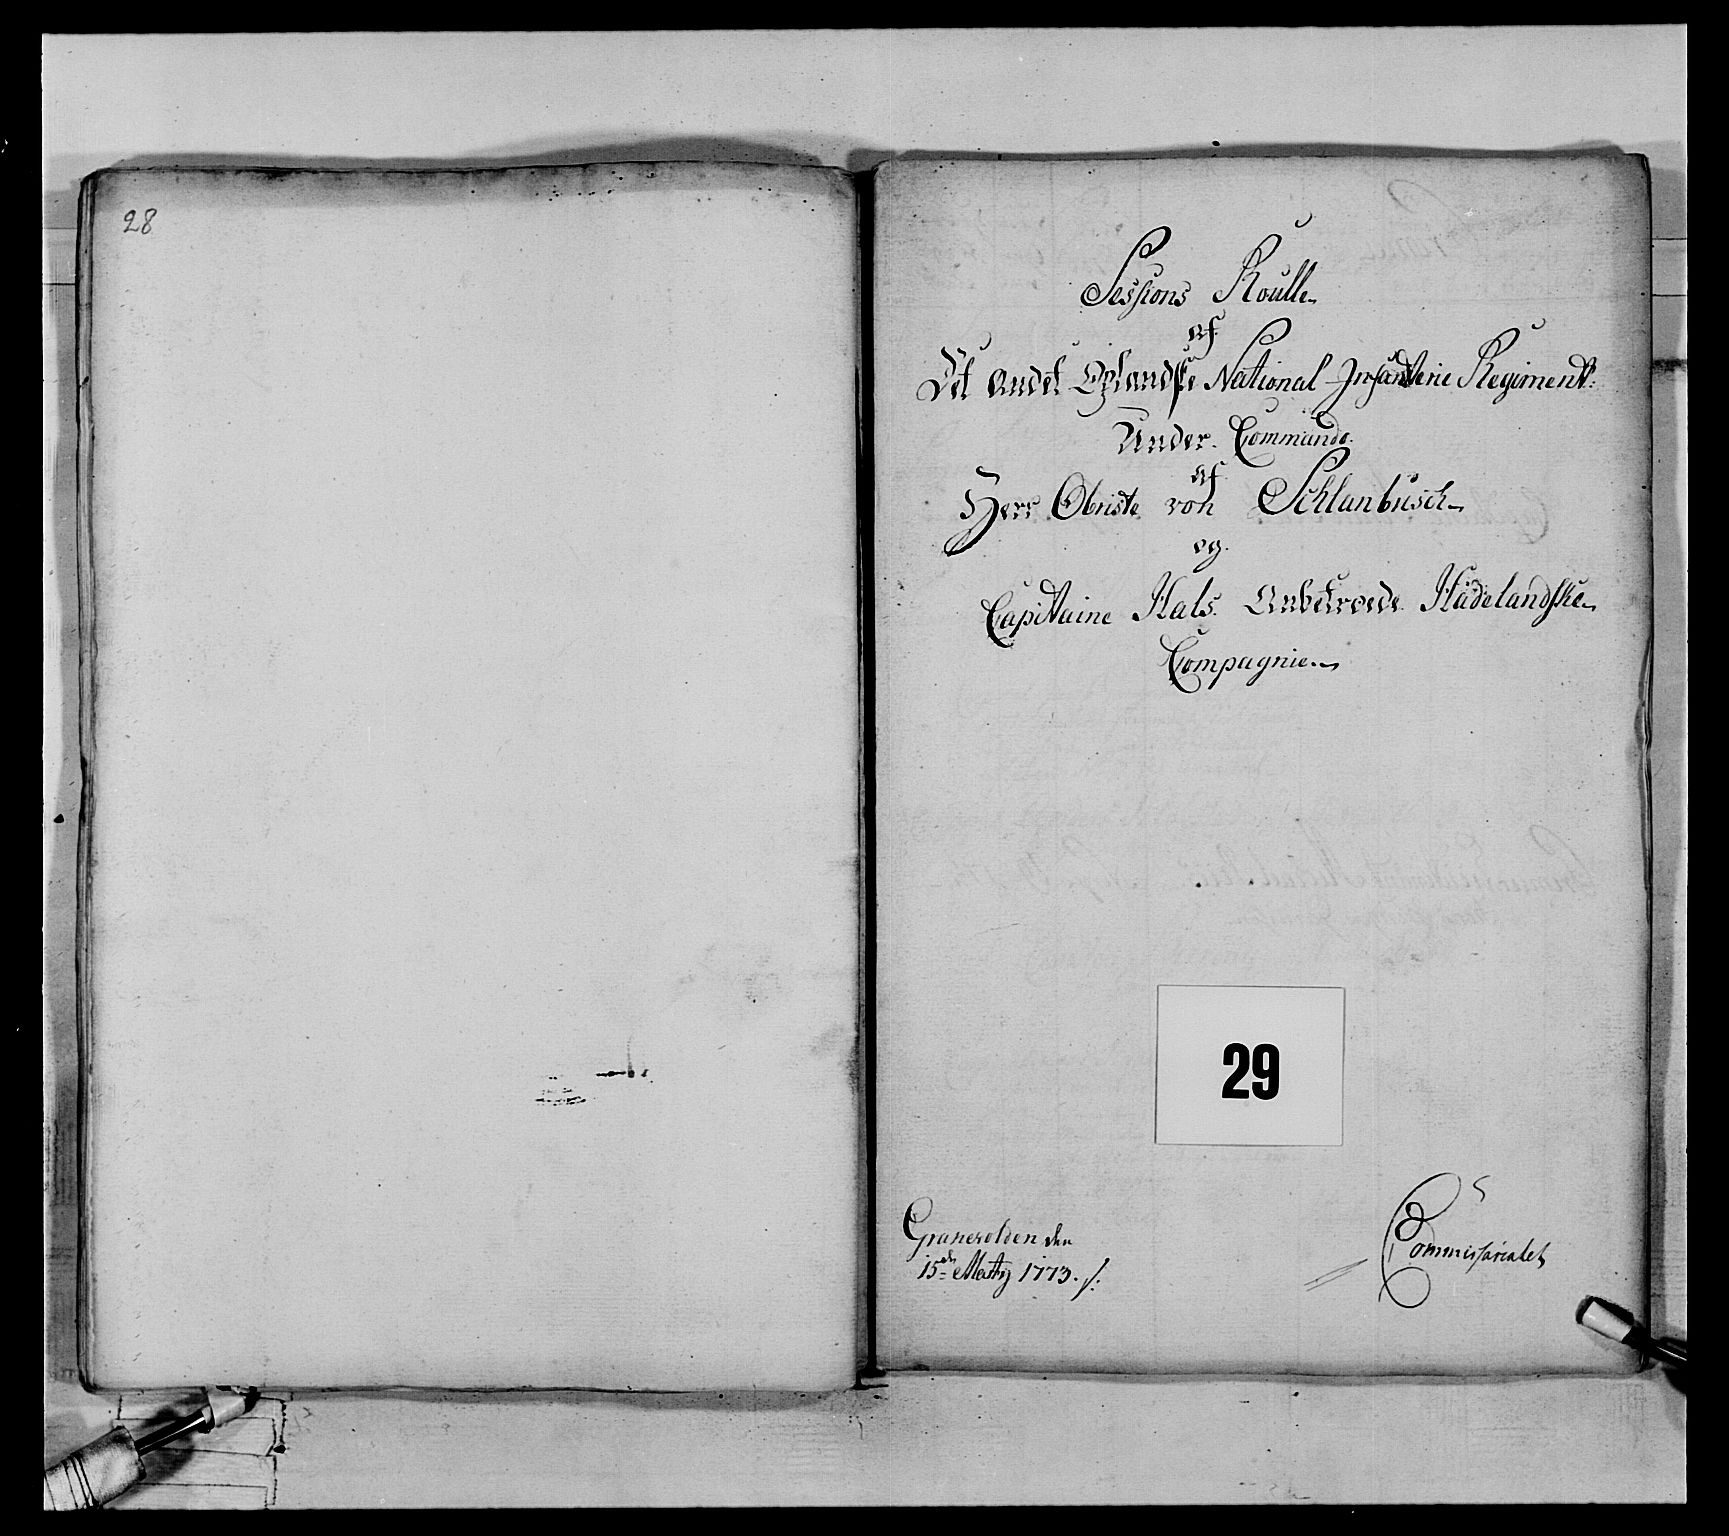 28
Sessions Roulle
af
Det Andet Oplandske National Infanterie Regiment:
Under. Commando.
af
Herr Obriste von Schlanbusch
og.
Capitaine Hals. Anbetroede Hadelandske
Compagnie.
29
Granevolden den
15de Martij 1773. /:
Commissariatet